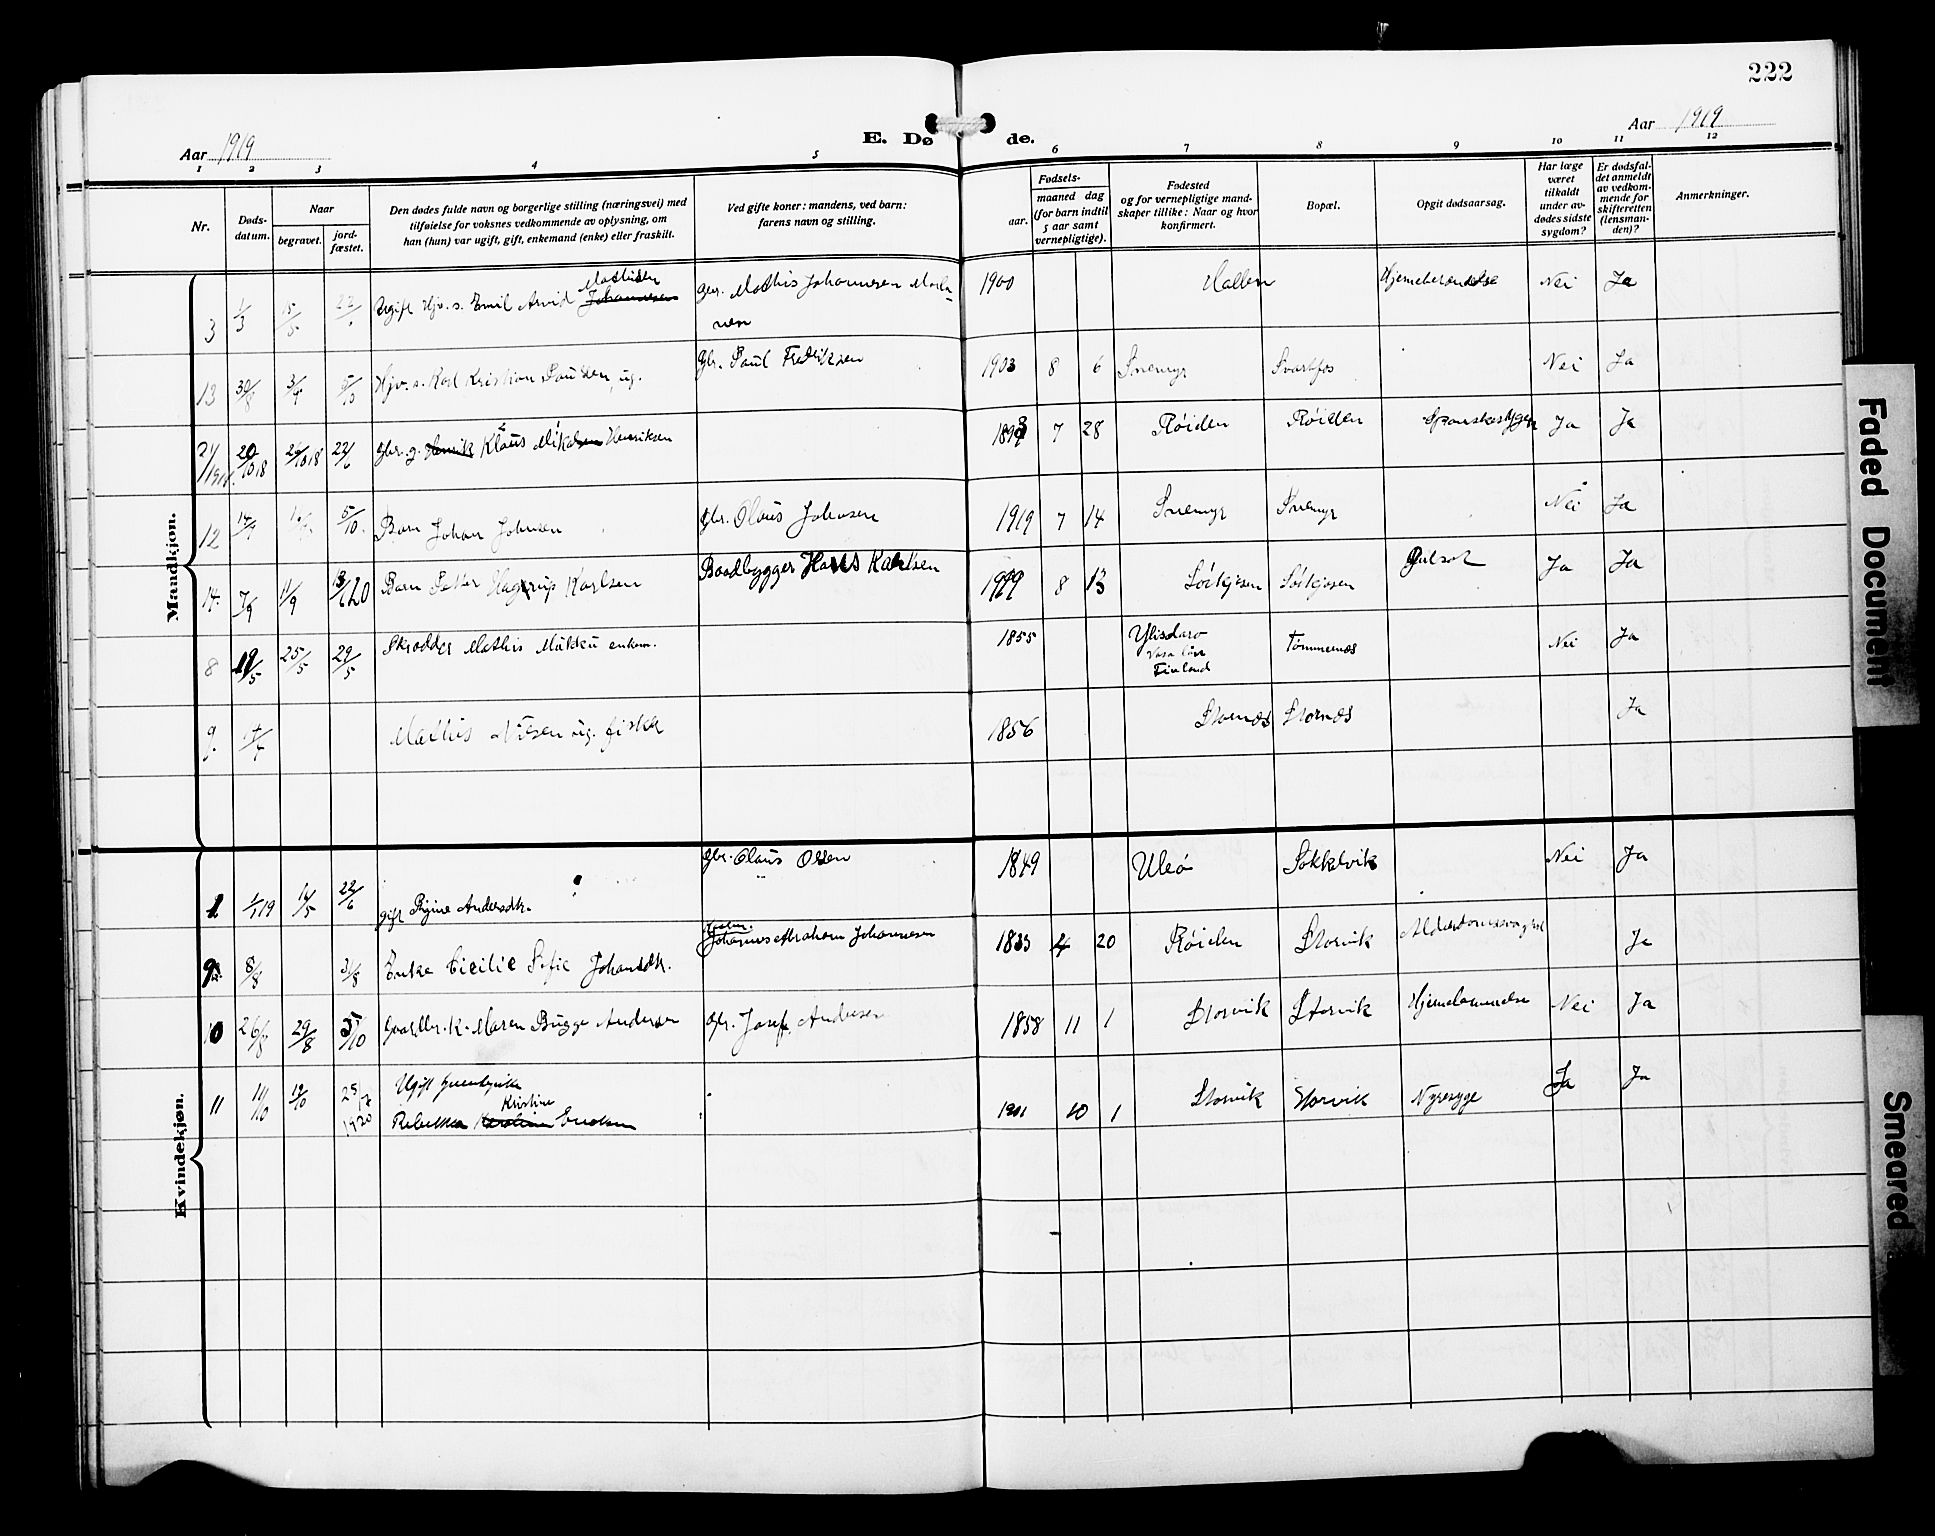 222
Aar 1919
E. Dø de.
Aar 1919
1 2 3 4 5 6 7 8 9 10 11 12
Nr.
Døds-
datum.
Naar
begravet.
jord-
fæstet.
Den dødes fulde navn og borgerlige stilling (næringsvei) med
tilføielse for voksnes vedkommende av oplysning, om
han (hun) var ugift, gift, enkemand (enke) eller fraskilt.
Ved gifte koner: mandens, ved barn:
farens navn og stilling.
Fødsels-
aar.
maaned dag
(for barn indtil
5 aar samt
vernepligtige).
Fødested
og for vernepligtige mand-
skaper tillike: Naar og hvor
konfirmert.
Bopæl.
Opgit dødsaarsag.
Har læge
været
tilkaldt
under av-
dødes sidste
sygdom?
Er dødsfal-
det anmeldt
av vedkom-
mende for
skifteretten
(lensman-
den)?
Anmerkninger.
Mandkjøn.
3 1/3 15/5 Ugift Hjv. s. Emil Arvid Johannesen gbr. Mathis Johannesen 1900 Hallen Nei Ja
13 30/8 3/9 5/10 Hjv. s. Karl Kristian Paulsen, ug. gbr. Paul Fredriksen 1903 8 6 Snemyr Svartfos Nei Ja
20/10 18 26/10 18 22/6 gbr. g. Henrik Klaus Mikalsen Henriksen 7 28 Røielen Røielen Spanskesygen Ja Ja
12 14/9 5/10. Barn Johan Johnsen gbr. Olaus Johnsen 1919 7 14 Snemyr Snemyr Nei Ja
14. 7/9 11/9 Barn Petter Hagerup Karlsen Baadbygger Hans Karlsen 1919 8 13 Sørkjosen Sørkjosen Gulsot Ja Ja
8 19/5 25/5 29/5 Skrædder Mathis enkem. 1855 Ylistaro
Vasa län
Finland Tømmernes Nei Ja
9. Mathis Nilsen ug. fisker 1856 Stornes Stornes Ja
Kvindekjøn.
1 1/1 19 14/5 22/6 gift Regine Andersdtr. gbr. Olaus Olsen 1849 Uleø Sokkelvik Nei Ja
9 8/8 31/8 Enke Cicilie Sofie Johansdtr. Johannes Abraham Johannesen 1833 4 20 Røielen Storvik Alderdomssvaghet Ja
10 26/8 29/8 5/10 Maren Bugge Andersen gbr. Josef Andersen 1858 11 1 Storvik Storvik Hjernebetændelse Nei Ja
11 11/10 12/10 25/7
1920 Ugift
Kristine
Rebekka Karoline 1901 10 1 Storvik Storvik Nyresyge Ja Ja
Faded Document
Smeared